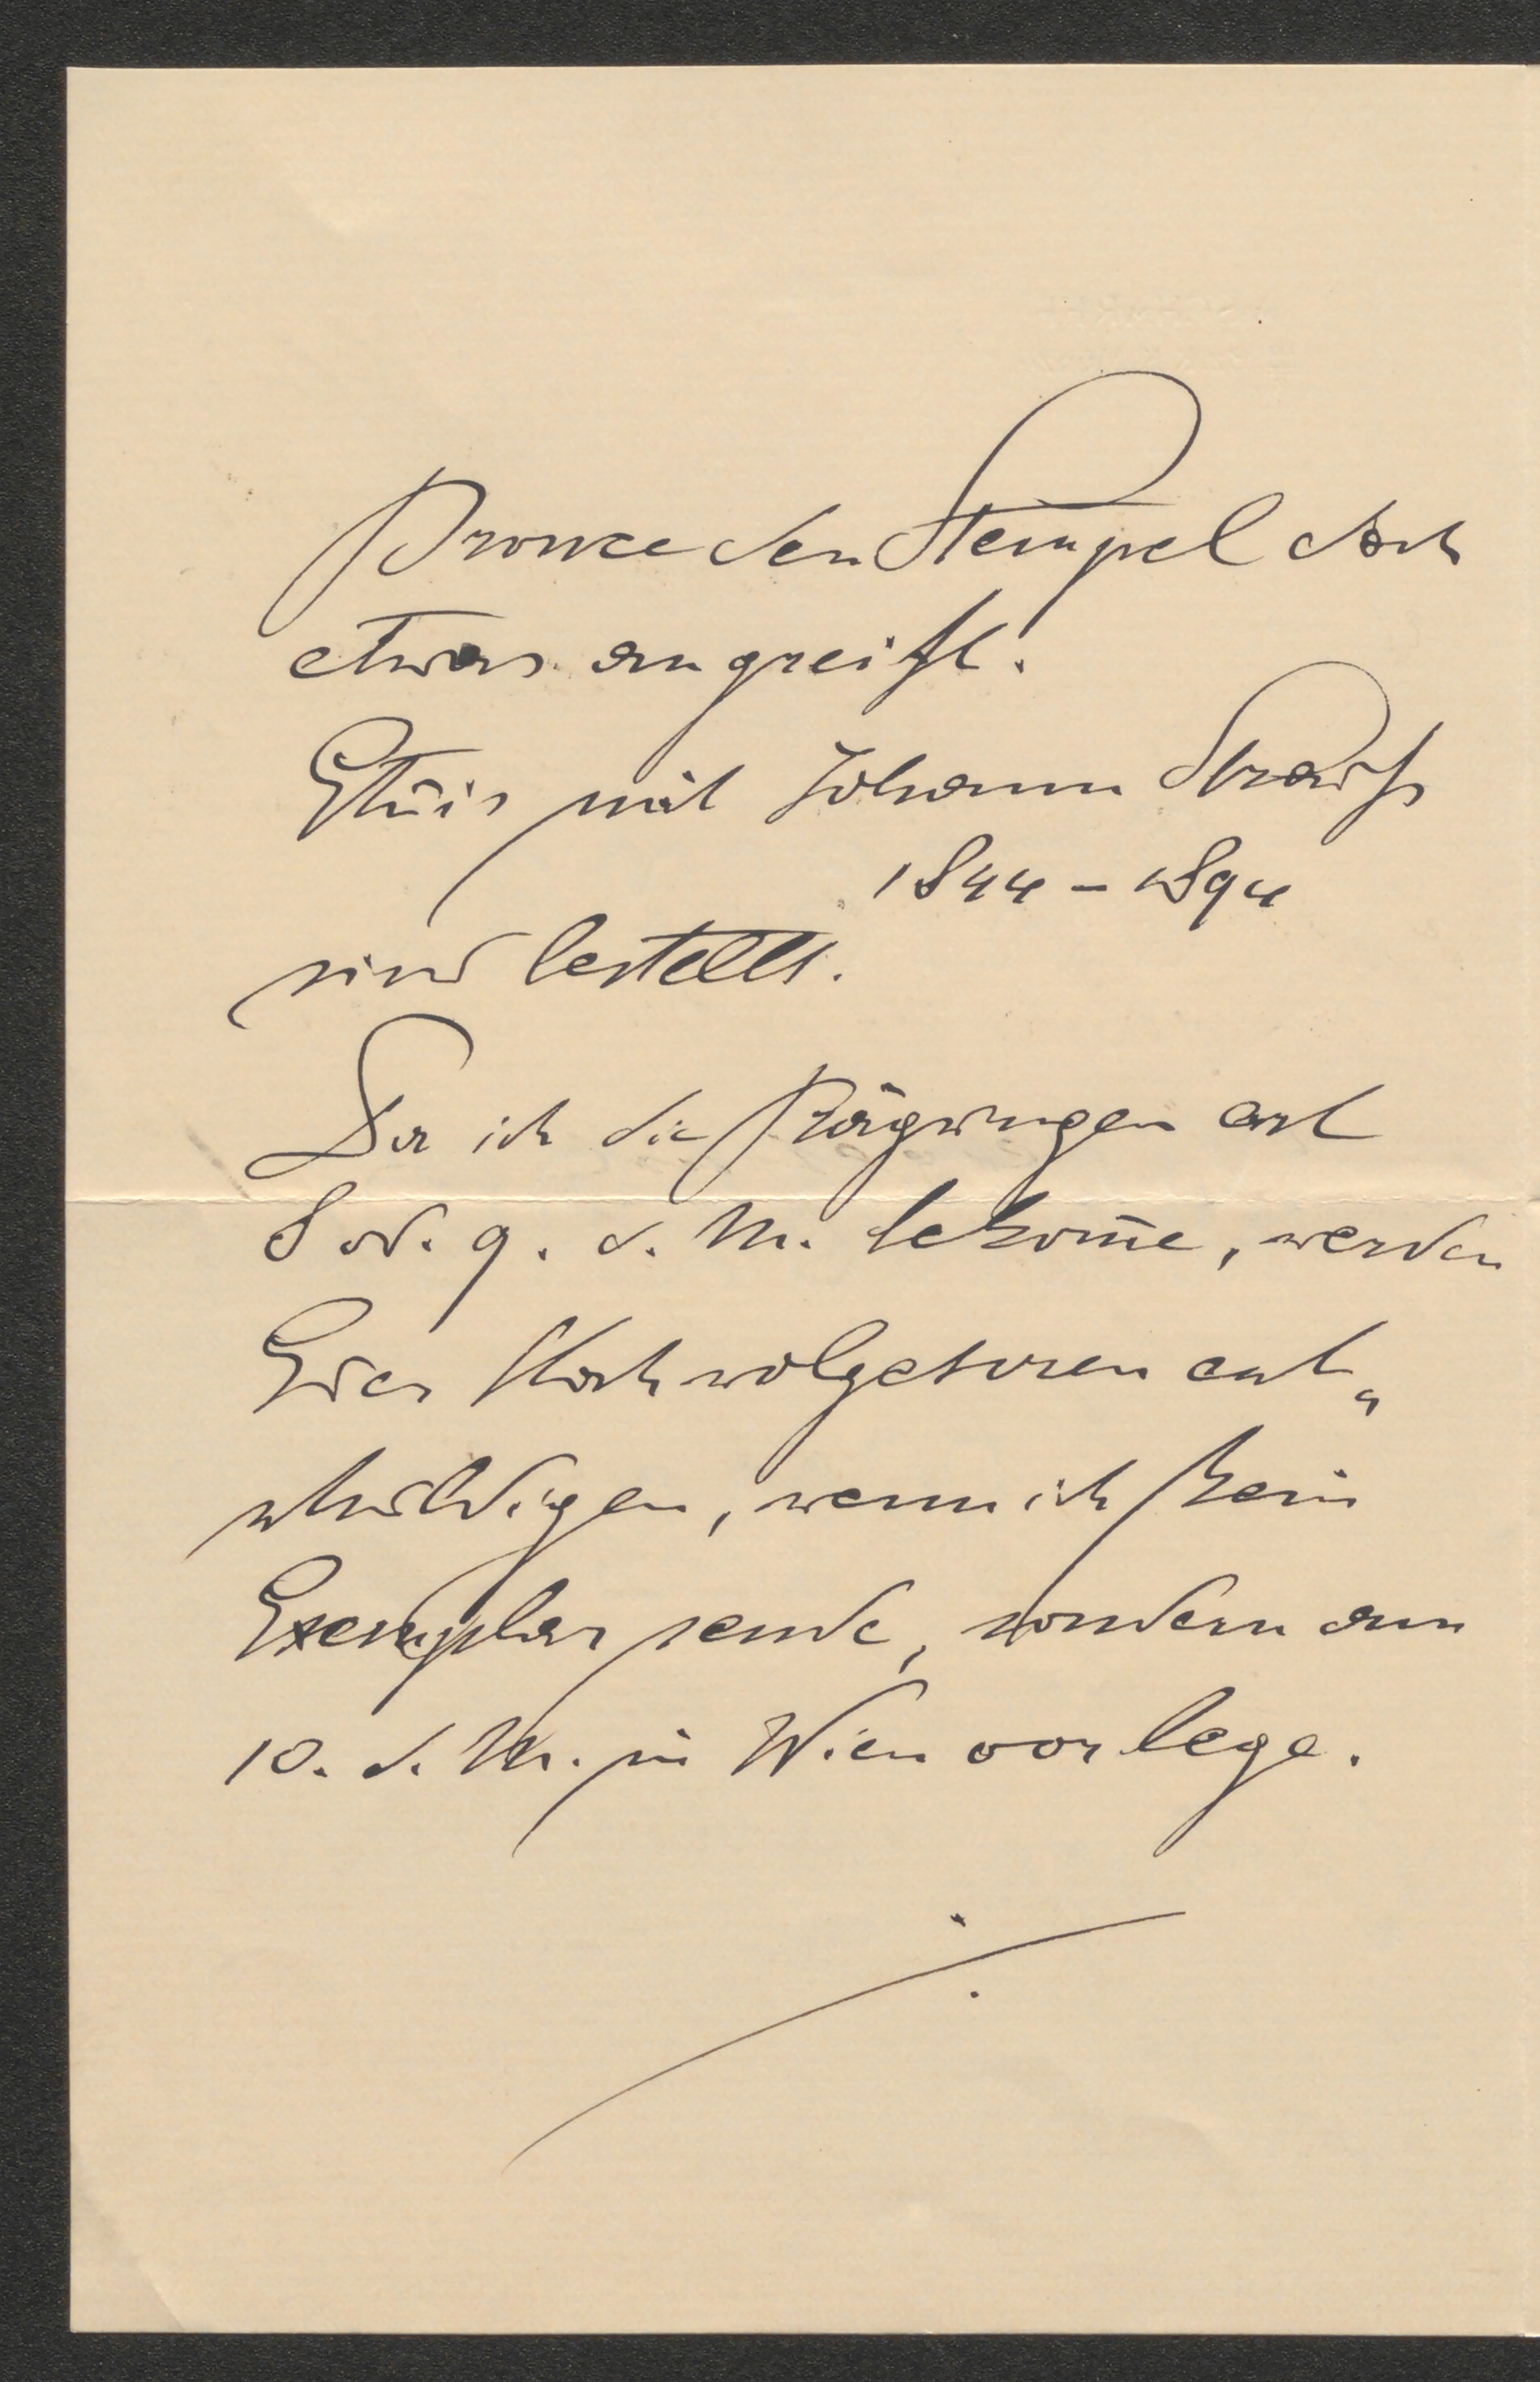 Bronce den Stempel doch
etwas angreift.
Etuis mit Johann Strauß
1844 – 1894
sind bestellt.
Da ich die Prägungen erst
8 od. 9. d. M. bekom̅e, werden
Euer Hochwolgeboren ent„
schuldigen, wenn ich kein
Exemplar sende, sondern am
10. d. M. in Wien vorlege.